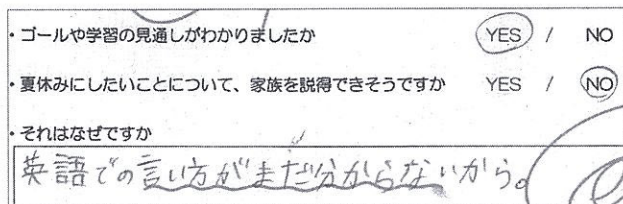 ・ゴールや学習の見通しがわかりましたか YES / NO
・夏休みにしたいことについて、家族を説得できそうですか YES / NO
・それはなぜですか
英語での言い方がまだ分からないから。